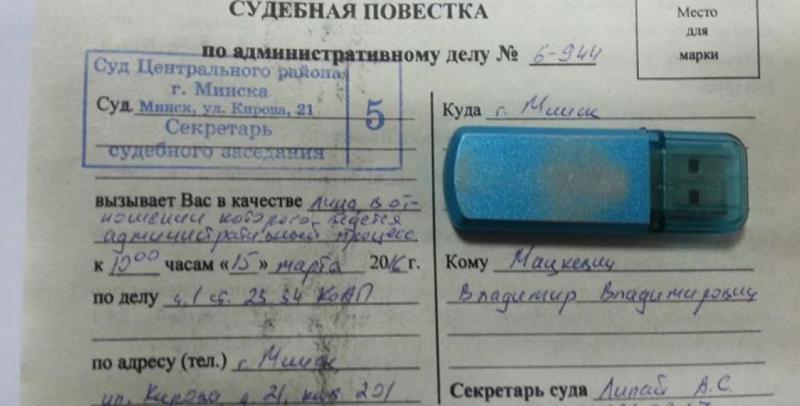 СУДЕБНАЯ ПОВЕСТКА
по административному делу № 6-944
Место
для
марки
Суд Центрального района
г. Минска
Суд Минск, ул. Кирова, 21
Секретарь
судебного заседания
5
вызывает Вас в качестве лица в от-
ношении которого ведется
административный процесс
к 10⁰⁰ часам «15» марта 2016 г.
по делу ч.1 ст. 23.34 КоАП
по адресу (тел.) г. Минск
ул. Кирова д. 21, каб 201
Куда г. Минск
Кому Мацкевич
Владимир Владимирович
Секретарь суда Липай А.С.